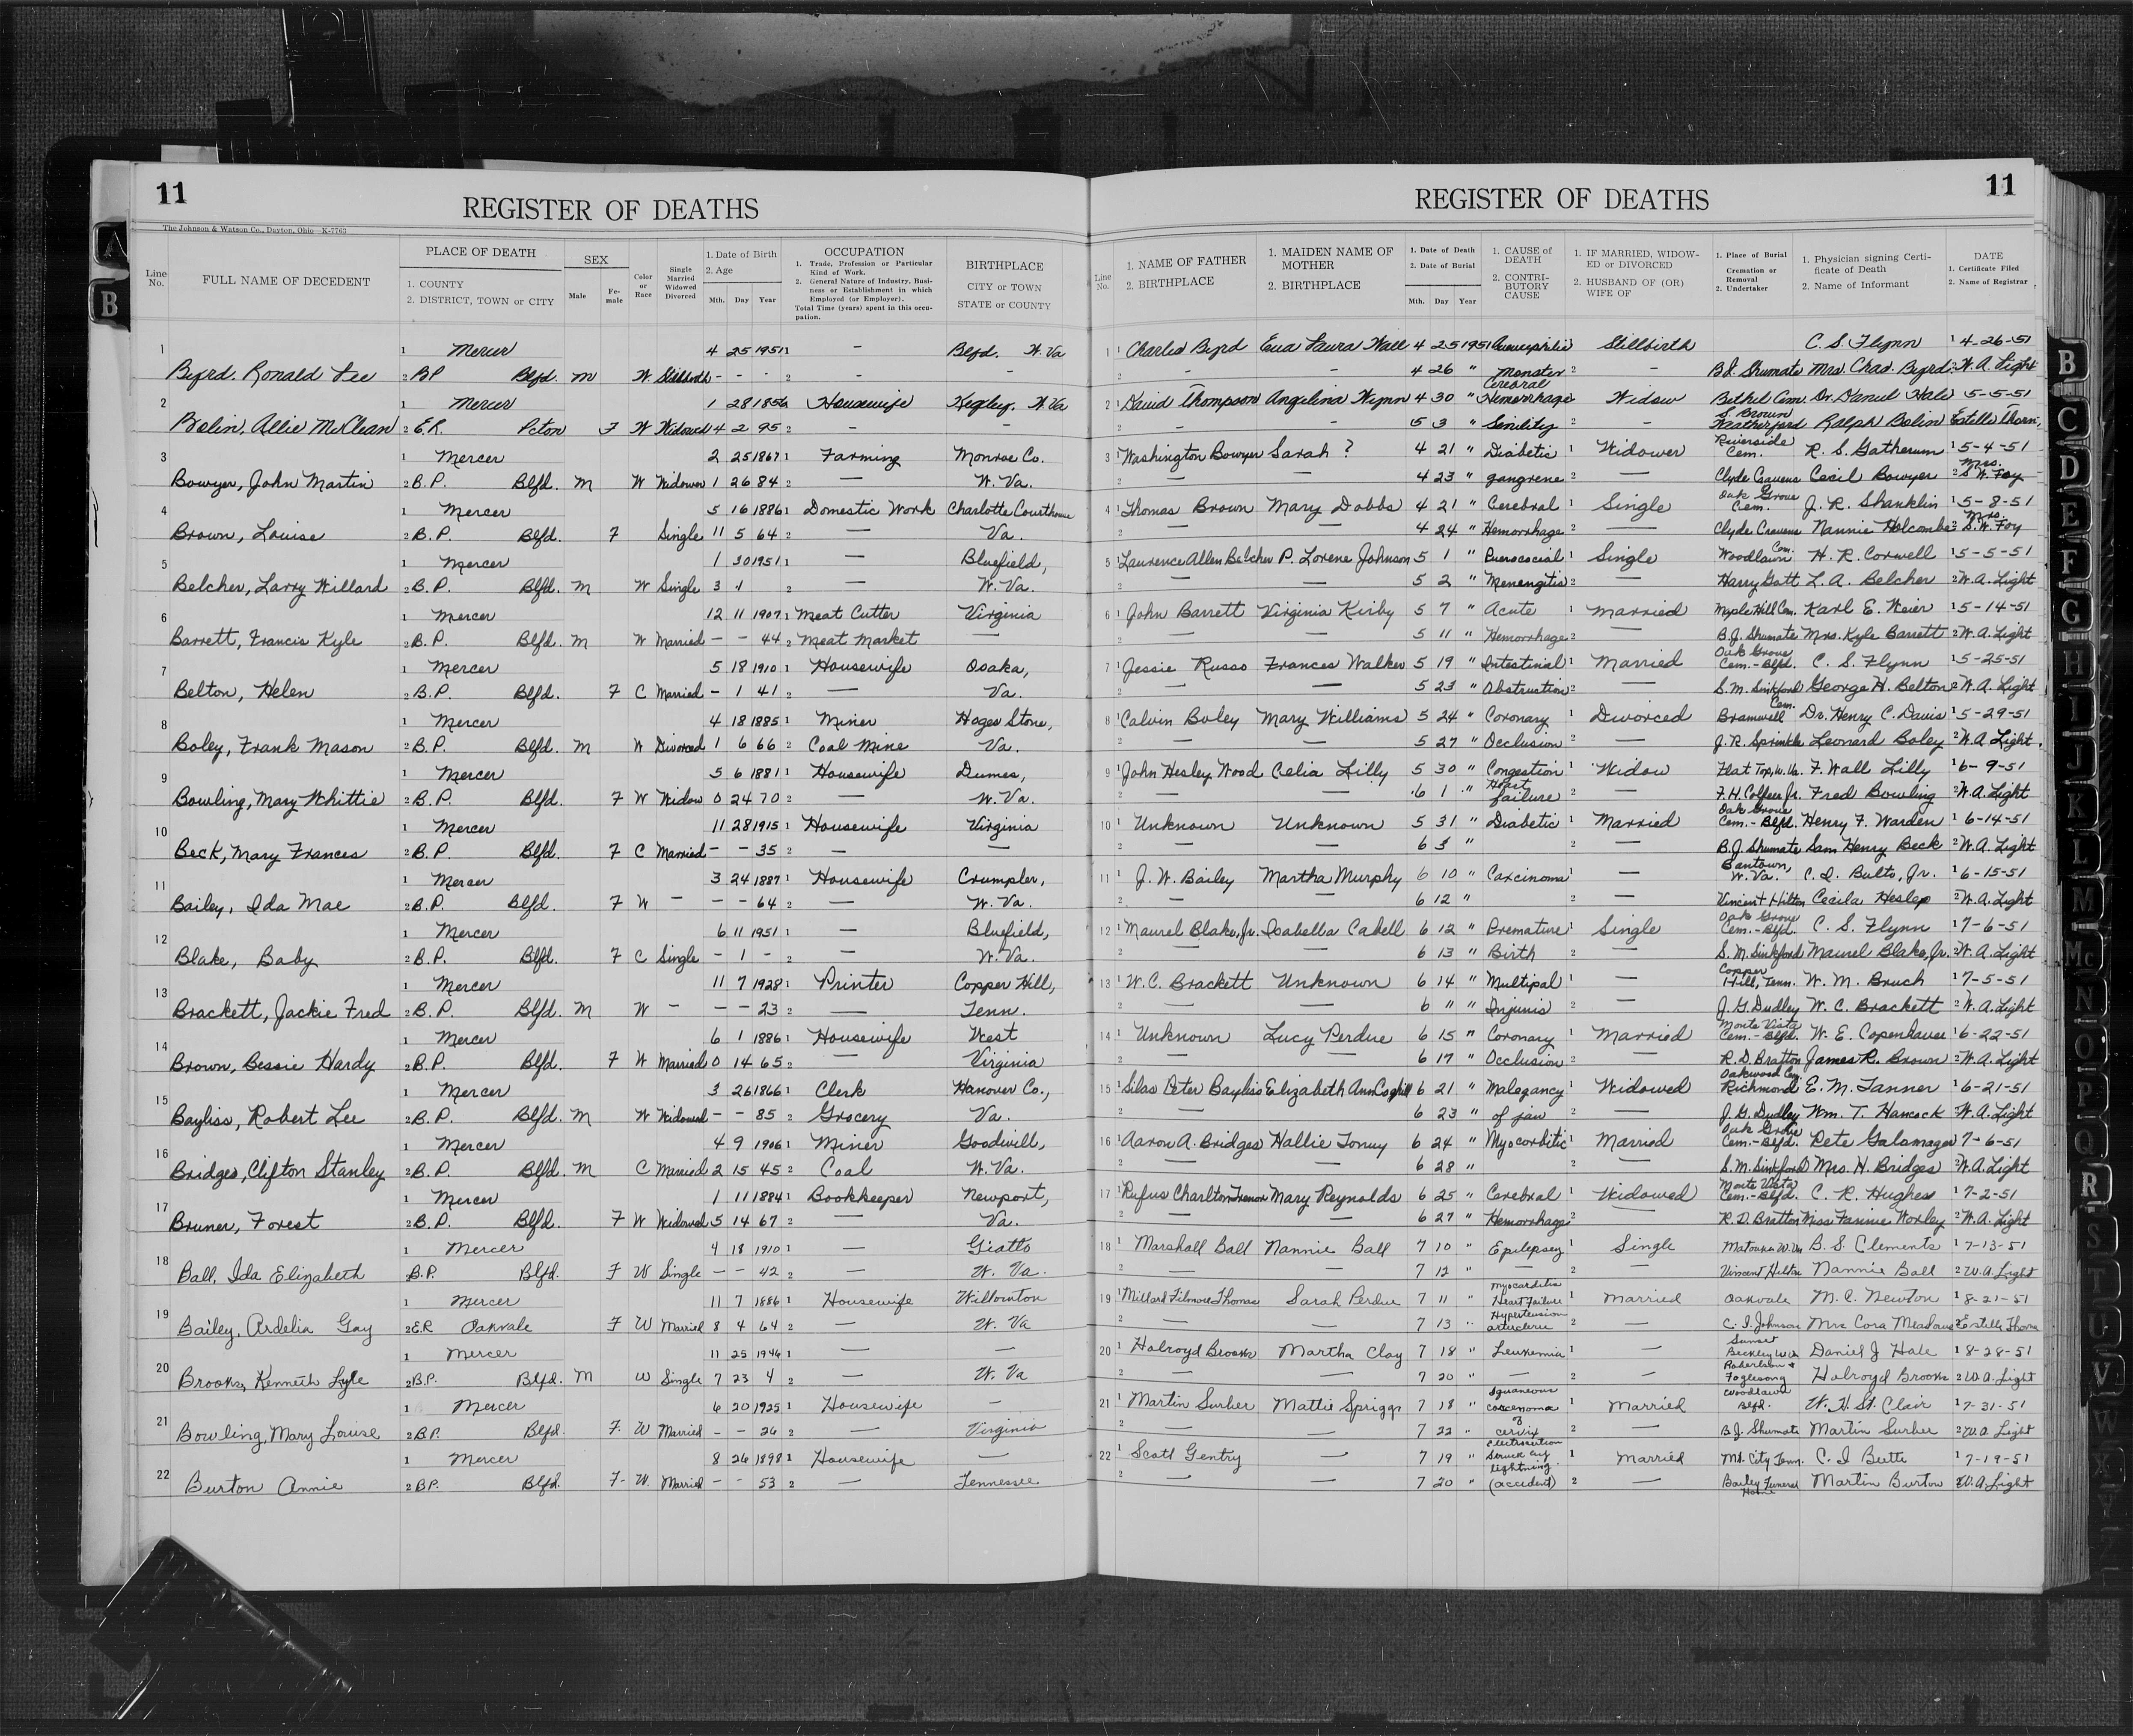 11
REGISTER OF DEATHS
The Johnson & Watson Co., Dayton, Ohio—K-7763
Line No. FULL NAME OF DECEDENT PLACE OF DEATH 1. COUNTY 2. DISTRICT, TOWN or CITY SEX Male Female Color or Race Single Married Widowed Divorced 1. Date of Birth 2. Age Mth. Day Year OCCUPATION 1. Trade, Profession or Particular Kind of Work. 2. General Nature of Industry, Business or Establishment in which Employed (or Employer). Total Time (years) spent in this occupation. BIRTHPLACE CITY or TOWN STATE or COUNTY
1 1 Mercer 4 25 1951 1 – Blfd. W. Va
Byrd. Ronald Lee 2 BP Blfd. M W Stillbirth - - - 2 - -
2 1 Mercer 1 28 1856 Housewife Kegley. W. Va
Bolin, Allie McClean 2 E.R. Pcton F W Widowed 4 2 95 2 - -
3 1 Mercer 2 25 1867 1 Farming Monroe Co.
Bowyer, John Martin 2 B.P. Blfd. M W Widower 1 26 84 2 — W. Va.
4 1 Mercer 5 16 1886 1 Domestic Work Charlotte Courthouse
Brown, Louise 2 B.P. Blfd. F Single 11 5 64 2 — Va.
5 1 Mercer 1 30 1951 1 — Bluefield,
Belcher, Larry Willard 2 B.P. Blfd. M W Single 3 1 2 — W. Va.
6 1 Mercer 12 11 1907 1 Meat Cutter Virginia
Barrett, Francis Kyle 2 B.P. Blfd. M W Married — - 44 2 Meat Market —
7 1 Mercer 5 18 1910 1 Housewife Osaka,
Belton, Helen 2 B.P. Blfd. F C Married - 1 41 2 — Va.
8 1 Mercer 4 18 1885 1 Miner Hages Stone,
Boley, Frank Mason 2 B.P. Blfd. M W Divorced 1 6 66 2 Coal Mine Va.
9 1 Mercer 5 6 1881 1 Housewife Dumes,
Bowling, Mary Whittie 2 B.P. Blfd. F W Widow 0 24 70 2 — W. Va.
10 1 Mercer 11 28 1915 1 Housewife Virginia
Beck, Mary Frances 2 B.P. Blfd. F C Married - - 35 2 — —
11 1 Mercer 3 24 1887 1 Housewife Crumpler,
Bailey, Ida Mae 2 B.P. Blfd. F W - - - 64 2 — W. Va.
12 1 Mercer 6 11 1951 1 — Bluefield,
Blake, Baby 2 B.P. Blfd. F C Single - 1 - 2 — W. Va.
13 1 Mercer 11 7 1928 1 Printer Copper Hill,
Brackett, Jackie Fred 2 B.P. Blfd. M W - — - 23 2 — Tenn.
14 1 Mercer 6 1 1886 1 Housewife West
Brown, Bessie Hardy 2 B.P. Blfd. F W Married 0 14 65 2 — Virginia
15 1 Mercer 3 26 1866 1 Clerk Hanover Co.,
Bayliss, Robert Lee 2 B.P. Blfd. M W Widowed - - 85 2 Grocery Va.
16 1 Mercer 4 9 1906 1 Miner Goodwill,
Bridges, Clifton Stanley 2 B.P. Blfd. M C Married 2 15 45 2 Coal W. Va.
17 1 Mercer 1 11 1884 1 Bookkeeper Newport,
Bruner, Forest 2 B.P. Blfd. F W Widowed 5 14 67 2 — Va.
18 1 Mercer 4 18 1910 1 — Giatto
Ball, Ida Elizabeth 2 B.P. Blfd. F W Single - - 42 2 — W. Va.
19 1 Mercer 11 7 1886 1 Housewife Willownton
Bailey, Ardelia Gay 2 E.R Oakvale F W Married 8 4 64 2 — W. Va
20 1 Mercer 11 25 1946 1 — —
Brooks, Kenneth Lyle 2 B.P. Blfd. M W Single 7 23 4 2 — W. Va
21 1 Mercer 6 20 1925 1 Housewife —
Bowling, Mary Louise 2 B.P. Blfd. F. W Married - - 26 2 — Virginia
22 1 Mercer 8 26 1898 1 Housewife —
Burton Annie 2 B.P. Blfd. F- W. Married - - 53 2 — Tennessee
11
REGISTER OF DEATHS
Line No. 1. NAME OF FATHER 2. BIRTHPLACE 1. MAIDEN NAME OF MOTHER 2. BIRTHPLACE 1. Date of Death 2. Date of Burial Mth. Day Year 1. CAUSE of DEATH 2. CONTRIBUTORY CAUSE 1. IF MARRIED, WIDOWED or DIVORCED 2. HUSBAND OF (OR) WIFE OF 1. Place of Burial Cremation or Removal 2. Undertaker 1. Physician signing Certificate of Death 2. Name of Informant DATE 1. Certificate Filed 2. Name of Registrar
1 1 Charles Byrd Eua Laura Wall 4 25 1951 Stillbirth C. S. Flynn 1 4-26-51
2 - - 4 26 " Monster 2 - B.J. Shumate Mrs. Chas. Byrd 2 W. A. Light
2 1 David Thompson Angeline Wynn 4 30 " Cerebral Hemorrhage Widow Bethel Cem. Dr. Daniel Hale 1 5-5-51
2 - - 5 3 " Senility 2 - S. Brown Weatherford Ralph Bolin Estelle Thorn,
3 1 Washington Bowyer Sarah ? 4 21 " Diabetic 1 Widower Riverside Cem. R. S. Gatherum 1 5-4-51
2 — 4 23 " gangrene 2 — Clyde Cravens Cecil Bowyer 2 Mrs. S. W. Foy
4 1 Thomas Brown Mary Dobbs 4 21 " Cerebral 1 Single Oak Grove Cem. J. R. Shanklin 1 5-8-51
2 — — 4 24 " Hemorrhage 2 — Clyde Cravens Nannie Holcombe 2 Mrs. S. W. Foy
5 1 Laurence Allen Belcher P. Lorene Johnson 5 1 " 1 Single Woodlawn Cem. H. R. Corwell 1 5-5-51
2 — — 5 2 " Menengitis 2 — Harry Gatt L. A. Belcher 2 W. A. Light
6 1 John Barrett Virginia Kirby 5 7 " Acute 1 Married Maple Hill Cem. Karl E. Weier 1 5-14-51
2 — — 5 11 " Hemorrhage 2 — B.J. Shumate Mrs. Kyle Barrett 2 W. A. Light
7 1 Jessie Russo Frances Walker 5 19 " Intestinal 1 Married Oak Grove Cem.-Blfd. C. S. Flynn 1 5-25-51
2 — — 5 23 " Obstruction 2 — S. M. Sinkford George H. Belton 2 W. A. Light
8 1 Calvin Boley Mary Williams 5 24 " Coronary 1 Divorced Bramwell Cem. Dr. Henry C. Davis 1 5-29-51
2 — — 5 27 " Occlusion 2 — J. R. Sprinkle Leonard Boley 2 W. A. Light.
9 1 John Hesley Wood Celia Lilly 5 30 " Congestion 1 Widow Flat Top, W. Va. F. Wall Lilly 1 6-9-51
2 — — 6 1 " Heart failure 2 — F. H. Calfee Jr. Fred Bowling 2 W. A. Light
10 1 Unknown Unknown 5 31 " Diabetic 1 Married Oak Grove Cem.-Blfd. Henry F. Warden 1 6-14-51
2 — — 6 3 " 2 — B.J. Shumate Sam Henry Beck 2 W. A. Light
11 1 J. W. Bailey Martha Murphy 6 10 " Carcinoma 1 — W. Va. C. I. Butts, Jr. 1 6-15-51
2 — — 6 12 " 2 — Vincent Hilton Cecila Heslep 2 W. A. Light
12 1 Maurel Blake, Jr. Isabella Cabell 6 12 " Premature 1 Single Oak Grove Cem.-Blfd. C. S. Flynn 1 7-6-51
2 — — 6 13 " Birth 2 — S. M. Sinkford Maurel Blake, Jr. 2 W. A. Light
13 1 W. C. Brackett Unknown 6 14 " Multipal 1 — Copper Hill, Tenn. W. M. Bruch 1 7-5-51
2 — — 6 " " Injuris 2 — J. G. Dudley W. C. Brackett 2 W. A. Light
14 1 Unknown Lucy Perdue 6 15 " Coronary 1 Married Monte Vista Cem.-Blfd. W. E. Copenhaver 1 6-22-51
2 — — 6 17 " Occlusion 2 — R. D. Bratton James R. Brown 2 W. A. Light
15 1 Silas Peter Bayliss Elizabeth Ann Coghill 6 21 " Malegancy 1 Widowed Oakwood Cem. Richmond E. M. Tanner 1 6-21-51
2 — 6 23 " of jaw 2 — J. G. Dudley Wm. T. Hancock 2 W. A. Light
16 1 Aaron A. Bridges Hallie Toney 6 24 " Myocorbitic 1 Married Oak Grove Cem.-Blfd. Pete Galamaga 1 7-6-51
2 — — 6 28 " 2 — S. M. Sinkford Mrs. H. Bridges 2 W. A. Light
17 1 Rufus Charlton Mary Reynolds 6 25 " Cerebral 1 Widowed Monte Vista Cem.-Blfd. C. R. Hughes 1 7-2-51
2 — — 6 27 " Hemorrhage 2 — R. D. Bratton Miss Fannie Worley 2 W. A. Light
18 1 Marshall Ball Nannie Ball 7 10 " Epilepsey 1 Single Matoaka W. Va B. S. Clements 1 7-13-51
2 — — 7 12 " — 2 — Vincent Hilton Nannie Ball 2 W. A. Light
19 1 Millard Filmore Thomas Sarah Perdue 7 11 " Myocardetis Heart Failure 1 Married Oakvale M. C. Newton 1 8-21-51
2 — — 7 13 " Hypertension 2 — C. I. Johnson Mrs Cora Meadows 2 Estelle Thorn
20 1 Holroyd Brooks Martha Clay 7 18 " Leukemia 1 — Sunset Beckley W. Va Daniel J Hale 1 8-28-51
2 — — 7 20 " — 2 — Robertson & Foglesong Holroyd Brooks 2 W. A. Light
21 1 Martin Surber Mattie Spriggs 7 18 " Squameous carcenoma 1 Married Woodlawn Blfd. W. H St. Clair 1 7-31-51
2 — — 7 22 " of cervix 2 — B.J. Shumate Martin Surber 2 W. A. Light
22 1 Scott Gentry — 7 19 " electrocution Struck by lightning. 1 Married Mt. City Tenn. C. I Butts 1 7-19-51
2 — — 7 20 " (accident) 2 — Bailey Funeral Home Martin Burton 2 W. A. Light
A
B
B
C
D
E
F
G
H
I
J
K
L
M
Mc
N
O
P
Q
R
S
T
U
V
W
X
Y
Z